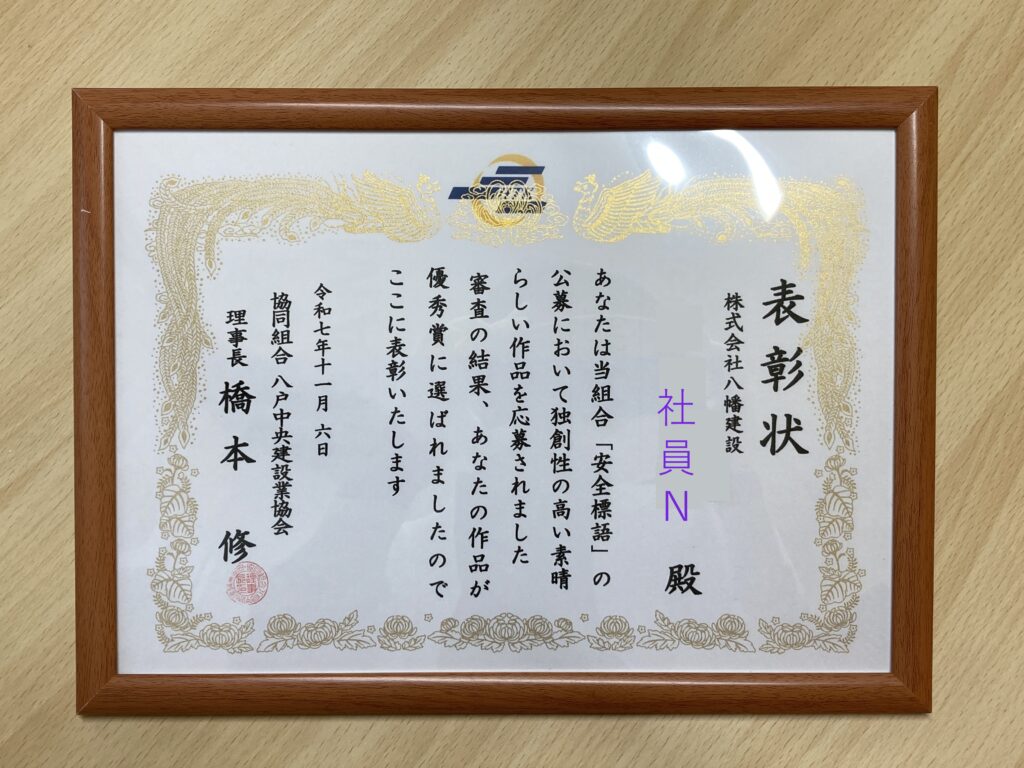 表彰状
株式会社八幡建設
社員N
殿
あなたは当組合「安全標語」の
公募において独創性の高い素晴
らしい作品を応募されました
審査の結果、あなたの作品が
優秀賞に選ばれましたので
ここに表彰いたします
令和七年十一月 六日
協同組合 八戸中央建設業協会
理事長 橋本 修